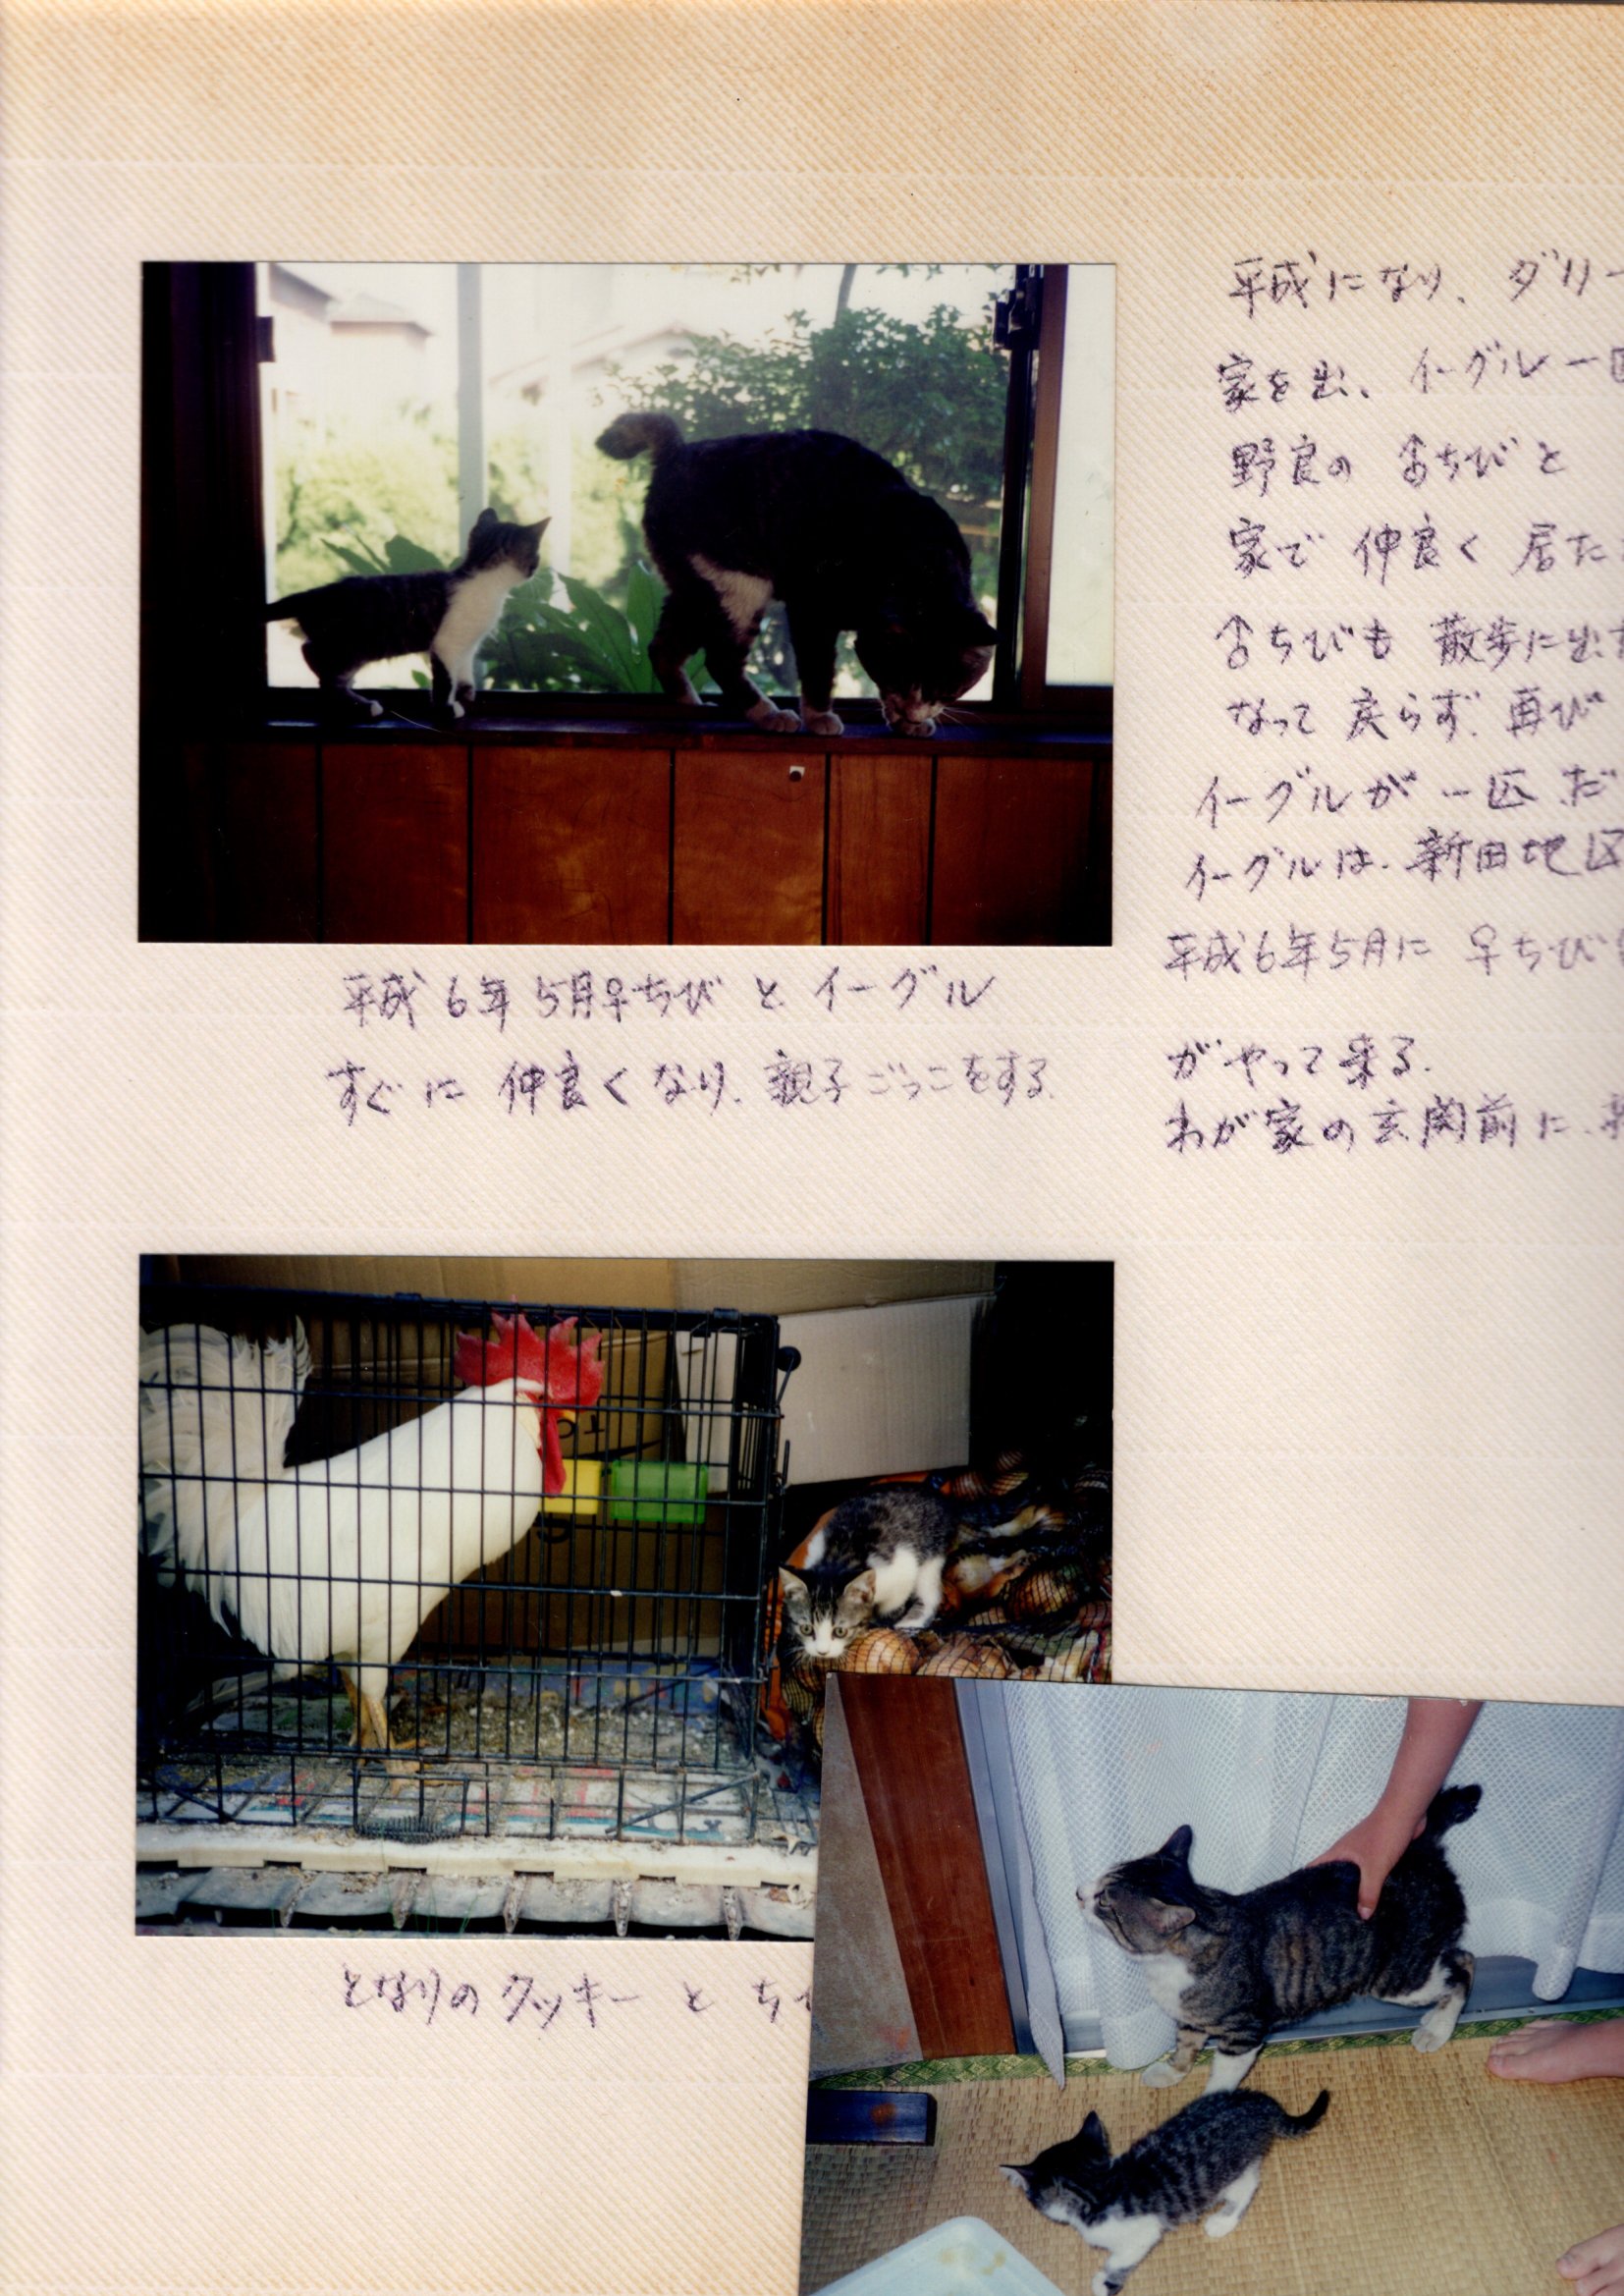 平成になり、ダリー
家を出、イーグル一
野良の ♂ちびと
家で 仲良く 居た
♂ちびも 散歩に出
なって 戻らず、再び
イーグルが 一匹 だ
イーグルは、新田地区
平成6年5月に ♀ちび
がやって来る.
わが家の玄関前に、
平成 6年 5月♀ちび と イーグル
すぐに 仲良く なり、親子ごっこをする.
となりの クッキー と ち